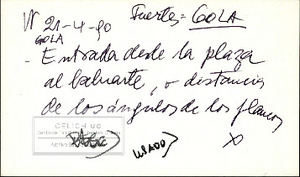 VI 21-4-90 Fuertes = GOLA
GOLA
- Entrada desde la plaza
al baluarte, o distancia
de los ángulos de los flancos
CELICH UC
USADO X